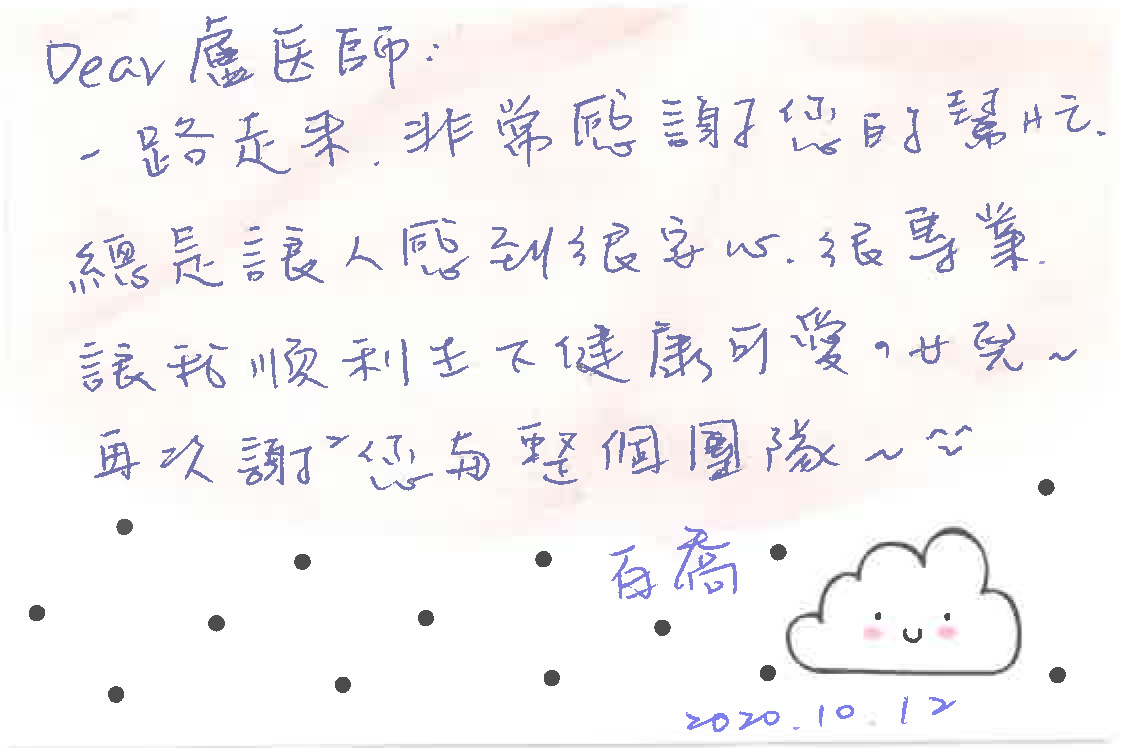 Dear 盧医師:
一路走来.非常感謝您的幫忙.
總是讓人感到很安心.很專業.
讓我順利生下健康可愛的女兒~
再次謝²您与整個團隊~
百喬
2020.10.12